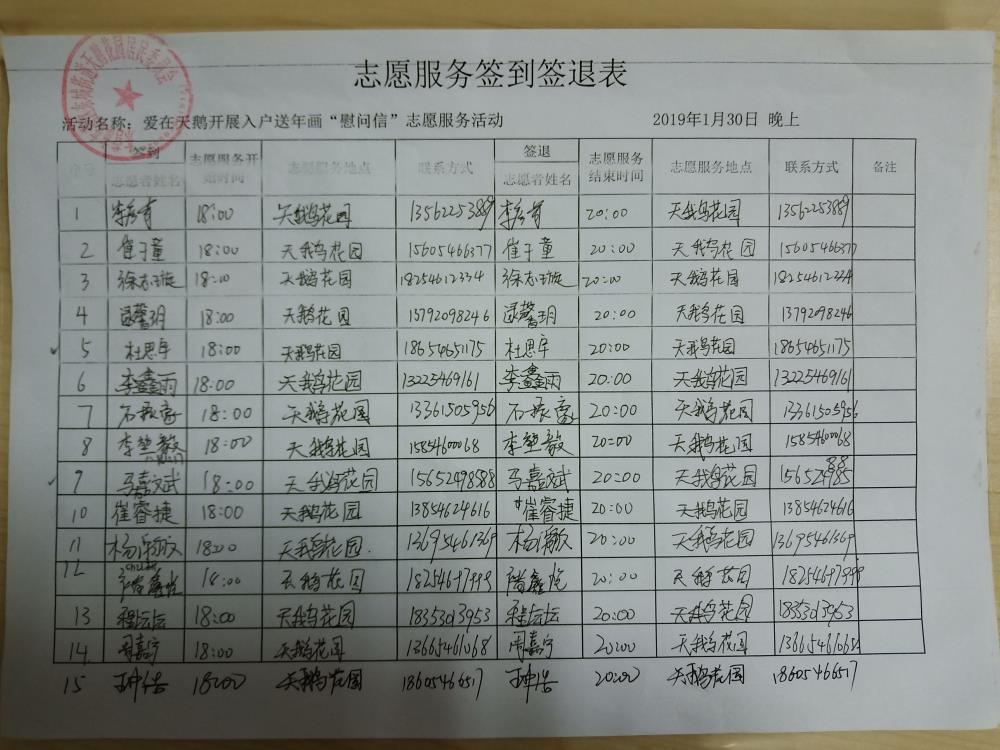 志愿服务签到签退表
活动名称：爱在天鹅开展入户送年画“慰问信”志愿服务活动 2019年1月30日 晚上
序号 签到 志愿服务开始时间 志愿服务地点 联系方式 签退 志愿服务结束时间 志愿服务地点 联系方式 备注
志愿者姓名 志愿者姓名
1 18:00 天鹅花园 13562253889 20:00 天鹅花园 13562253889
2 崔于童 18:00 天鹅花园 15605466377 崔于童 20:00 天鹅花园 15605466377
3 徐志璇 18:00 天鹅花园 18254612334 徐志璇 20:00 天鹅花园 18254612334
4 逯馨玥 18:00 天鹅花园 15792098246 逯馨玥 20:00 天鹅花园 13792098246
5 杜思宇 18:00 天鹅花园 18654651175 杜思宇 20:00 天鹅花园 18654651175
6 李鑫雨 18:00 天鹅花园 13225469161 李鑫雨 20:00 天鹅花园 13225469161
7 石振豪 18:00 天鹅花园 13361505956 石振豪 20:00 天鹅花园 13361505956
8 李堃毅 18:00 天鹅花园 1585460068 李堃毅 20:00 天鹅花园 1585460068
9 马嘉斌 18:00 天鹅花园 15652498588 马嘉斌 20:00 天鹅花园
10 崔睿捷 18:00 天鹅花园 13854624616 崔睿捷 20:00 天鹅花园 13854624616
11 18:00 天鹅花园 13695461369 20:00 天鹅花园 13695461369
12 18:00 天鹅花园 18254697999 20:00 天鹅花园 18254697999
13 程坛坛 18:00 天鹅花园 18353013953 程坛坛 20:00 天鹅花园 18353013953
14 周嘉宁 18:00 天鹅花园 13665461068 周嘉宁 20:00 天鹅花园
15 18:00 天鹅花园 18605466517 20:00 天鹅花园 18605466517